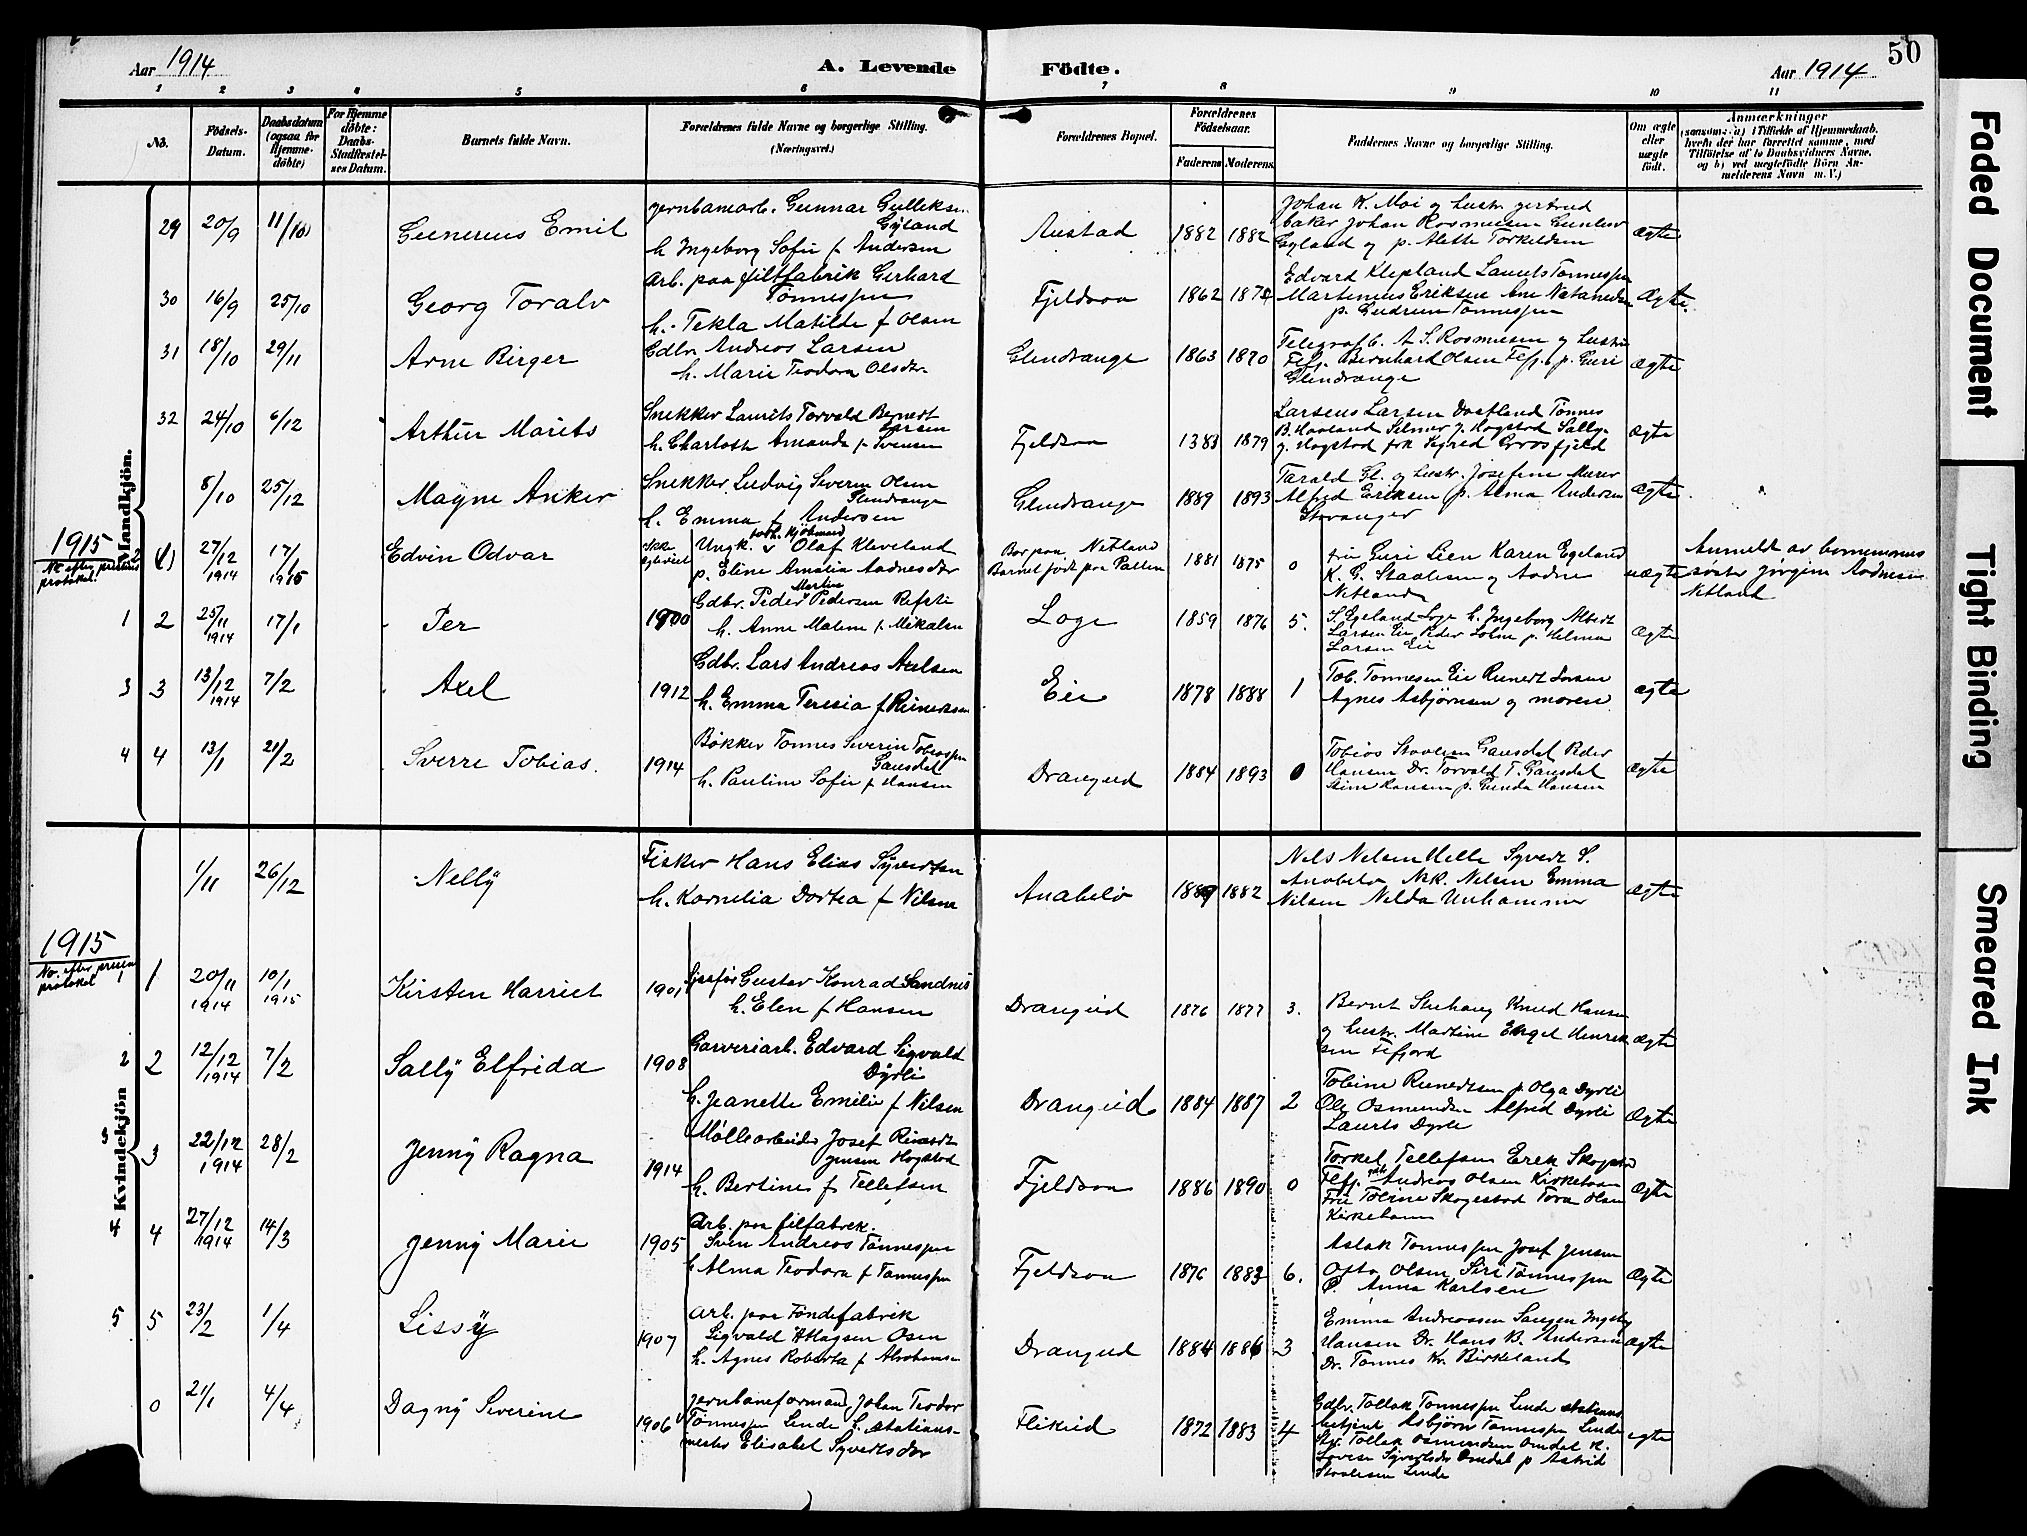 Aar 1914
A. Levende
Födte.
Aar 1914
50
1 2 3 4 5 6 7 8 9 10 11
No.
Födsels-
Datum.
Daabsdatum
(ogsaa for
Hjemme-
döbte)
For Hjemme
döbte:
Daabs-
Stadfæstel-
ses Datum.
Barnets fulde Navn.
Forældrenes fulde Navne og borgerlige Stilling.
(Næringsvei.)
Forældrenes Bopæl.
Forældrenes
Födselsaar.
Faderens Moderens
Faddernes Navne og borgerlige Stilling.
Om ægte
eller
uægte
födt.
Anmærkninger
(saasom: a) i Tilfælde af Hjemmedaab,
hvem der har forrettet samme, med
Tilföielse af to Daabsvidners Navne,
og b) ved uægtefödte Börn An-
melderens Navn m. V.)
Mandkjön.
29 20/9 11/10 Gunerius Emil
jernbanearb. Gunnar Gulleksen
Gyland
h. Ingeborg Sofie f. Andersen
Austad 1882 1882
Johan K. Moi og hustr. Gertrud
baker Johan Rosmusen Gunlev
Gyland og p. Alette Torkeldsen
ægte
30 16/9 25/10 Georg Toralv
Arb. paa filtfabrik Gerhard
Tønnessen
h. Tekla Matilde f Olsen
Fjeldsaa 1862
Edvard Klepland Laurits Tønnessen
Martinius Eriksen
p. Gudrun Tønnessen
Ægte.
31 18/10 29/11 Arne Birger
Gdbr. Andreas Larsen
h. Marie Teodora Olsdtr.
Glendrange 1863 1870
Telegrafb. A. S. Rosmusen og hustru
Bernhard Olsen Flefj. p. Guri
Glendrange
ægte
32 24/10 6/12 Arthur Marits
Snekker Laurits Torvald Berndt
Larsen
h. Charlotte Amanda f. Svensen
Fjeldsaa 1383 1879
Larsens Larsen Tønnes
B. Haaland Selmer J. Hogstad Sally
J. Hogstad frk Sigred Grøsfjeld
ægte
8/10 25/12 Magne Anker
Snekker Ludvig Severin Olsen
Glendrange
h. Emma f Andersen
Glendrange 1889 1893
Tarald Gl. og hustr. Josefine Murer
Alfred Eriksen p. Alma Andersen
Stavanger
ægte
1915
Nr. efter presten
protokol:
2 (1) 27/12 1914 17/1 1915 Edvin Odvar
Ikke
Ungk. v Olaf Kleveland
p. Eline Amalia Aadnesdtr
Bor paa Netland
Barnet født paa
1881 1875 0
fru Guri Lien Karen Egeland
K. G. Staalesen og Aadne
Netland
uægte
Anmeldt av barnemorens
søster Jørgine Aadnesen
Netland
1 2 25/11 1914 17/1 Per 1900
Gdbr. Peder Martin Pedersen Refsti
h. Anne Malene f. Mikalsen
Loge 1859 1876 5.
S. Egeland Loge h. Ingeborg Albert
Larsen Eie Peder p. Helma
Larsen Eie
ægte
3 3 13/12 1914 7/2 Axel 1912
Gdbr. Lars Andreas Axelsen
h. Emma Teresia f Reinertsen
Eie 1878 1888 1
Tob. Tønnesen Eie Reinert
Agnes Asbjørnsen og moren
ægte
4 4 13/1 21/2 Sverre Tobias. 1914
Bøkker Tønnes Severin Tobiassen
Gausdal
h. Pauline Sofie f Hansen
Drangeid 1884 1893 0
Tobias Staalesen Gausdal Peder
Hansen Dr. Torvald T. Gausdal
Hansen p. Gunda Hansen
ægte
Kvindekjön
1/11 26/12 Nelly
Fisker Hans Elias Syvertsen
h. Kornelia Dortea f Nilsen
Anabelø 1889 1882
Nels Nelsen Helle Syvert S.
Anabelø Nelsen Emma
Nilsen Nelda Urhammer
ægte
1915
No. efter presten
protokol 1
1 20/11 1914 10/1 1915 Kirsten Harriet 1901
Gustav Konrad Sandnes
h. Elen f Hansen
Drangeid 1876 1877 3.
Bernt Knud Hansen
og hustr. Martine Engel Henrik
sen Fefjord
ægte
2 2 12/12 1914 7/2 Sally Elfrida 1908
Garveriarb. Edvard Sigvald
Dyrli
h. Jeanette Emilie f Nilsen
Drangeid 1884 1887 2
Tobine Reinertsen p. Olga Dyrli
Ole Osmundsen Alfred Dyrli
Laurits Dyrli
Ægte
3 3 22/12 1914 28/2 Jenny Ragna 1914
Møllearbeider Josef Reinert
Jensen Hogstad
h. Bertine f. Tellefsen
Fjeldsaa 1886 1890 0
Torkel Tellefsen Erek Skogstad
Flefj. Andreas Olsen Kirkehavn
Fru Tobine Skogestad Tora Olsen
Kirkehavn
ægte
4 4 27/12 1914 14/3 Jenny Marie 1905
Arb. paa filfabrek.
Sven Andreas Tønnessen
h Alma Teodora f Tønnessen
Fjeldsaa 1876 1883 6.
Aslak Tønnessen Josef Jensen
Olsen Siri Tønnessen
Anna Karlsen
ægte
5 5 23/2 1/4 Lissy 1907
Arb. paa Tøndefabrik
Sigvald Osen
h. Agnes Roberta f Abrahamsen
Drangeid 1884 1886 3
Emma Andreassen Ingeb.
Hansen Dr. Hans B. Andersen
Dr. Tønnes Kr. Birkeland
ægte
0 21/1 4/4 Dagny Severine 1906
jernbaneformand Johan Teodor
Tønnessen Linde h. stations-
mester Elisabet Syvertsdtr
Flikeid 1872 1883 4
Gdbr. Tollak Tønnessen Linde stations
betjent Asbjørn Tønnessen Linde
Tollak Osmundsen Omdal h.
Lovise Syvertsdtr Omdal p Astrid
Staalesen Linde
ægte
Faded Document
Tight Binding
Smeared Ink